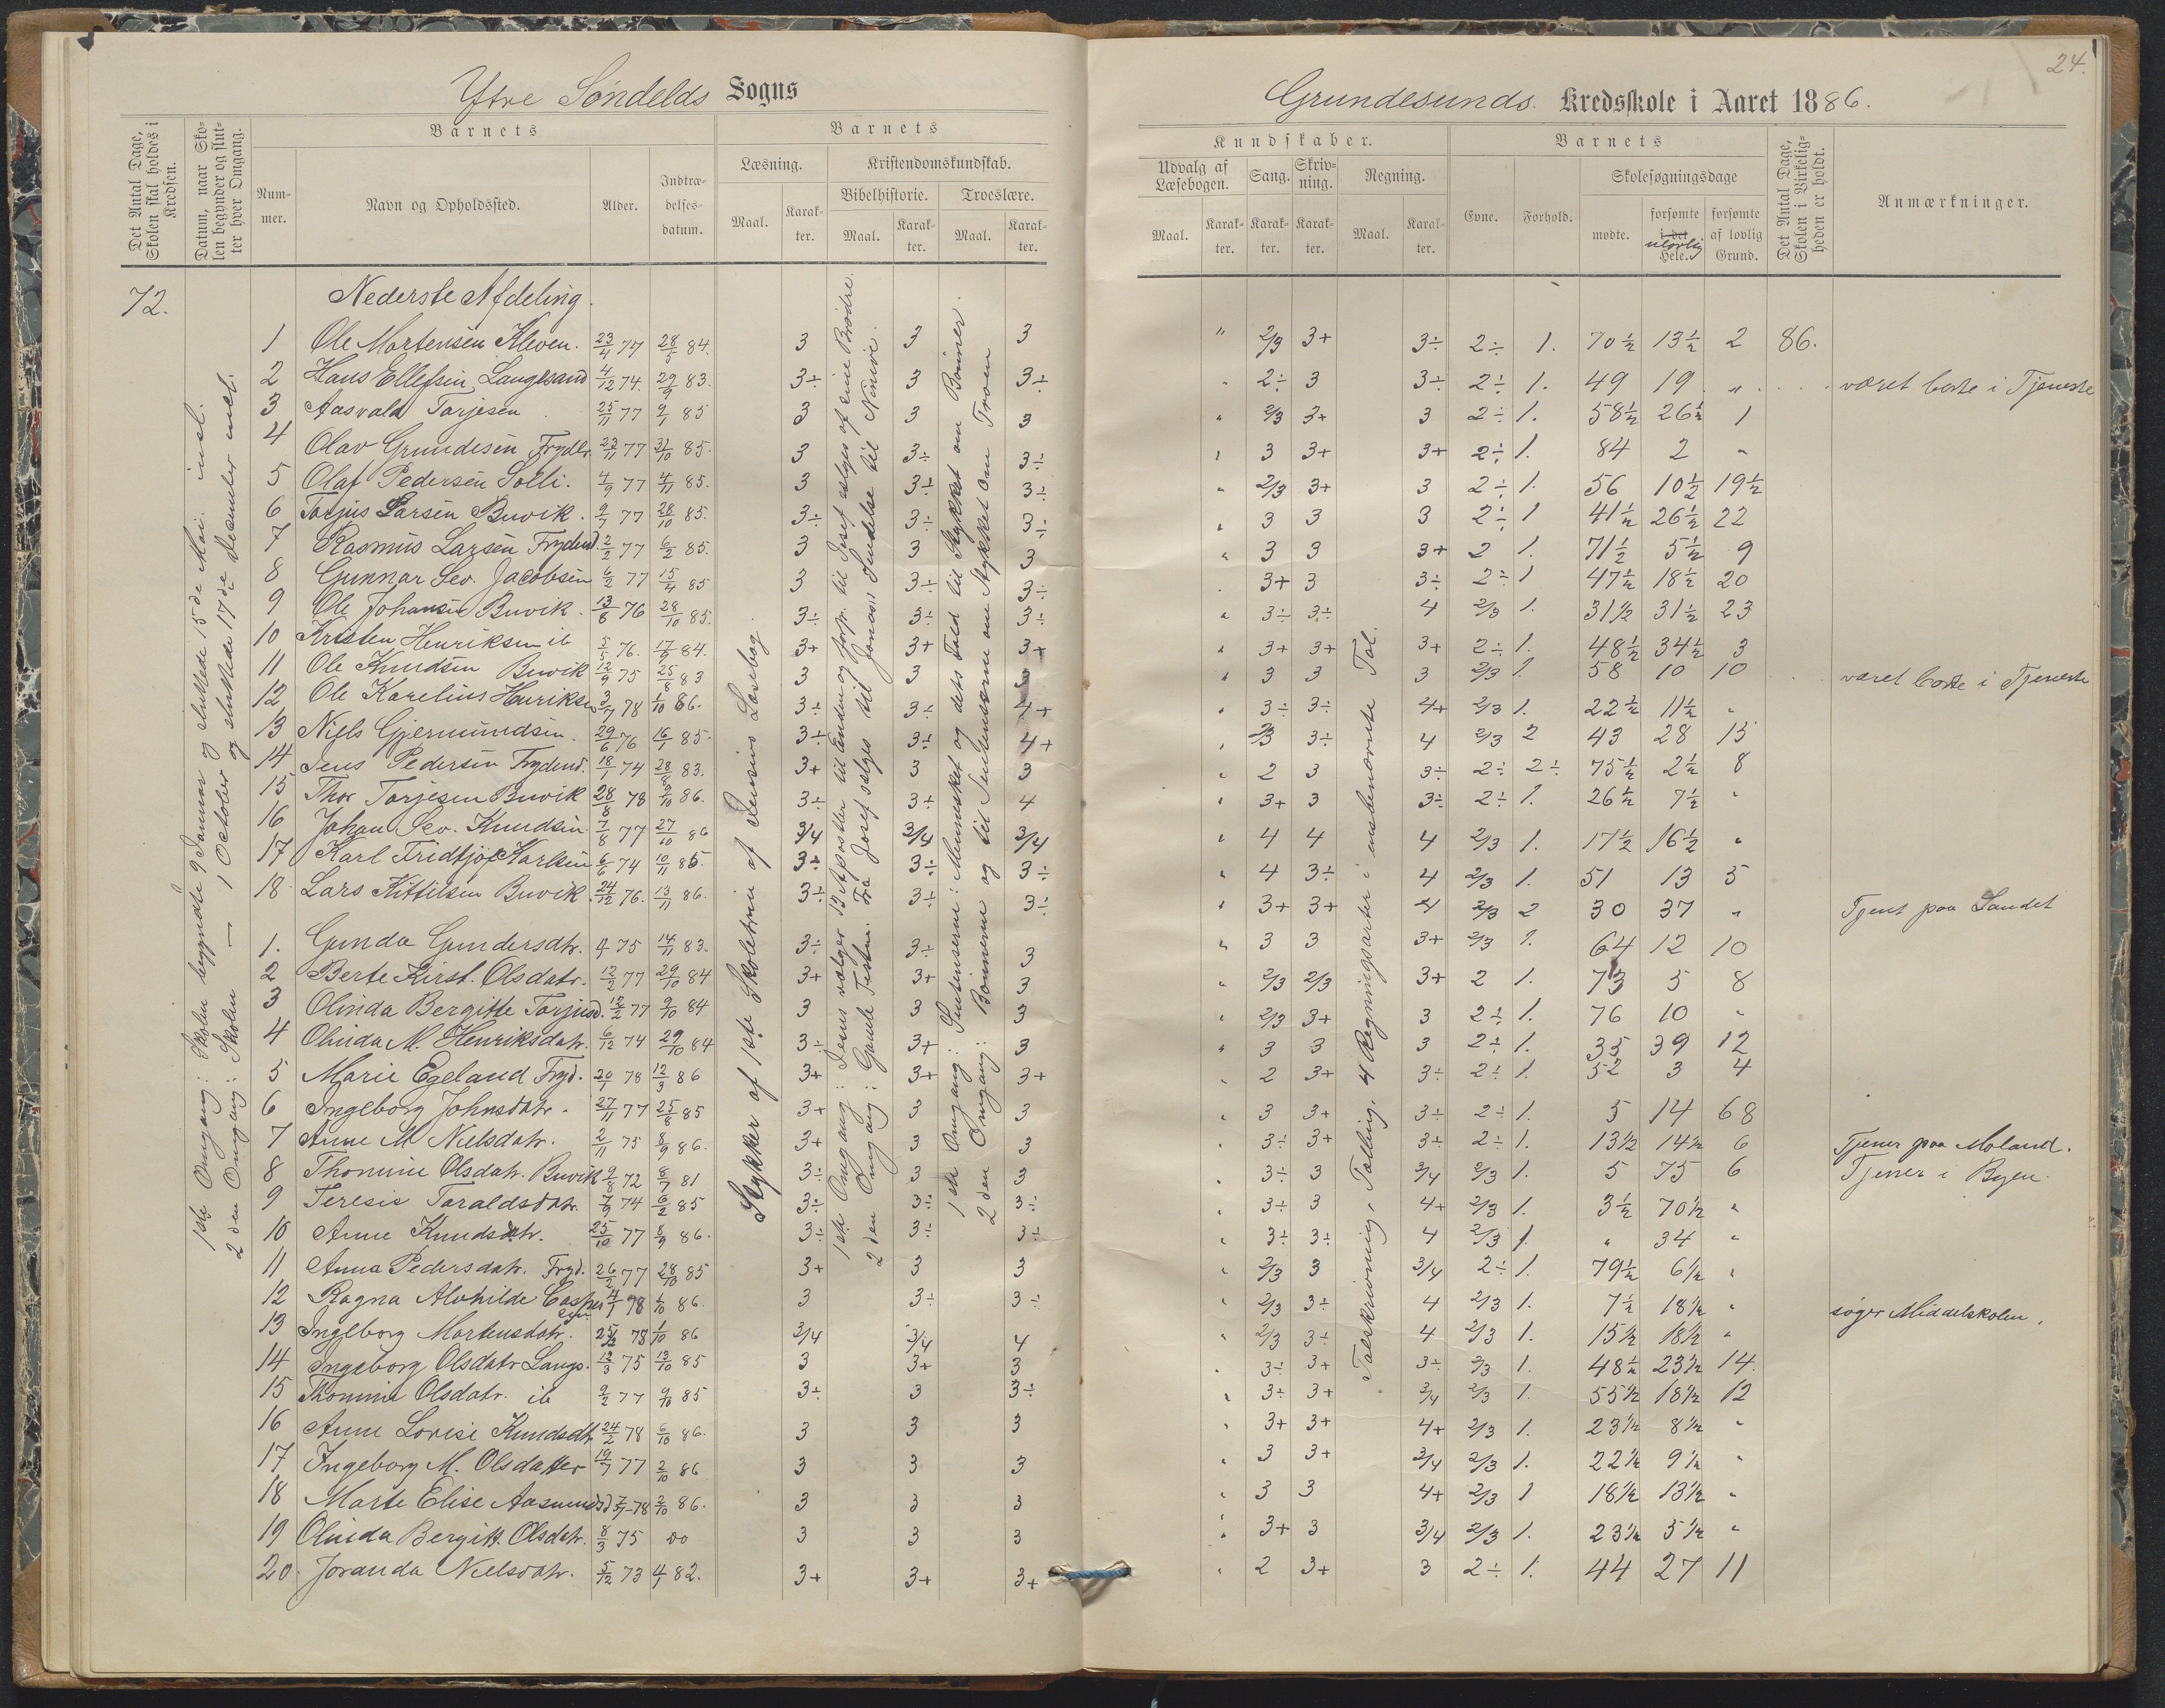 24.
Ytre Söndelds Sogns
Grundesunds. Kredsskole i Aaret 1886.
Det Antal Dage, Skolen skal holdes i Kredsen.
Datum, naar Skolen begynder og slutter hver Omgang.
Barnets
Nummer.
Navn og Opholdssted.
Alder.
Indtrædelsesdatum.
Barnets
Læsning.
Maal.
Karakter.
Kristendomskundskab.
Bibelhistorie.
Maal.
Karakter.
Troeslære.
Maal.
Karakter.
Kundskaber.
Udvalg af Læsebogen.
Maal.
Karakter.
Sang.
Karakter.
Skrivning.
Karakter.
Regning.
Maal.
Karakter.
Barnets
Evne.
Forhold.
Skolesøgningsdage
mødte.
forsømte i det ulovlig Hele.
forsømte af lovlig Grund.
Det Antal Dage, Skolen i Virkeligheden er holdt.
Anmærkninger.
72.
1ste Omgang: Skolen begyndte 9 Januar og sluttede 15de Mai. incl.
2den Omgang: Skolen — 1 October og sluttede 17de December incl.
Stykker af 1ste Skoletrin af Jensens Læsebog.
1ste Omgang: Jesus vælger 12 Apostler til Endn. og forp. til Josef sælges af sine Brødre.
2den Omgang: Gamle Testm. Fra Josef sælges til Jonas's Sendelse til Ninive.
1ste Omgang: Sentenserne: Mennesket og dets Fald til Stykket om Bønner.
2den Omgang: Bønnerne og til Sentenserne om Stykket om Troen
Talskrivning, Tælling, 4 Regningsarter i ensbenævnte Tal.
Nederste Afdeling.
1 Ole Mortensen Kleven. 23/4 77 28/5 84. 3 3 3 " 2/3 3+ 3÷ 2÷ 1. 70½ 13½ 2 86.
2 Hans Ellefsen, Langesand 4/12 74. 29/9 83. 3÷ 3 3÷ " 2÷ 3 3÷ 2÷ 1. 49 19 " været borte i Tjeneste
3 Aasvald Torjesen 25/11 77 9/1 85 3 3 3 " 2/3 3+ 3 2÷ 1. 58½ 26½ 1
4 Olav Grundesen Frydl. 23/11 77 31/10 85. 3 3÷ 3÷ " 3 3+ 3+ 2÷ 1. 84 2 "
5 Olaf Pedersen Solli. 4/9 77 4/11 85. 3 3÷ 3÷ " 2/3 3+ 3 2÷ 1. 56 10½ 19½
6 Torjus Larsen Buvik. 9/7 77 28/10 85. 3÷ 3÷ 3÷ " 3 3 3 2÷ 1 41½ 26½ 22
7 Rasmus Larsen Frydend. 2/2 77 6/2 85. 3 3 3 " 3 3 3+ 2 1. 71½ 5½ 9
8 Gunnar Sev. Jacobsen 6/2 77 15/4 85 3 3÷ 3÷ " 3+ 3 3÷ 2÷ 1 47½ 18½ 20
9 Ole Johansen Buvik. 13/6 76 28/10 85. 3÷ 3÷ 3÷ " 3÷ 3÷ 4 2/3 1. 31½ 31½ 23
10 Kristen Henriksen ib 5/5 76. 17/9 84. 3+ 3+ 3+ " 3+ 3+ 3+ 2÷ 1. 48½ 34½ 3
11 Ole Knudsen Buvik 12/9 75 25/8 83 3 3 3 " 3 3 3 2/3 1. 58 10 10 været borte i Tjeneste
12 Ole Karelius Henriksen 3/7 78 1/10 86. 3÷ 3÷ 4+ " 3÷ 3÷ 4+ 2/3 1. 22½ 11½ "
13 Niels Gjermundsen. 29/6 76 16/1 85. 3÷ 3÷ 4+ " 2/3 3÷ 4 2/3 2 43 28 15
14 Jens Pedersen Frydend. 18/1 74 28/8 83. 3+ 3 3 " 2 3 3÷ 2÷ 2÷ 75½ 2½ 8
15 Thor Torjesen Buvik 28/8 78 9/10 86. 3÷ 3÷ 4 " 3+ 3 3÷ 2÷ 1. 26½ 7½ "
16 Johan Sev. Knudsen 7/8 77 27/10 86 3/4 3/4 3/4 " 4 4 4 2/3 1. 17½ 16½ "
17 Karl Fridtjof Karlsen 6/6 74 10/11 85. 3÷ 3÷ 3÷ " 4 3÷ 4 2/3 1. 51 13 5
18 Lars Kittilsen Buvik. 24/12 76. 13/11 86. 3÷ 3÷ 3÷ " 3+ 3+ 4 2/3 2 30 37 " Tjent paa Sandet
1. Gunda Gundersdtr. 75 14/11 83. 3÷ 3÷ 3 " 3 3 3+ 2/3 1. 64 12 10
2 Berte Kirst. Olsdatr. 12/2 77 29/10 84 3+ 3+ 3 " 2/3 2/3 3+ 2 1. 73 5 8
3 Olinda Bergitte Torjusd. 12/2 77 9/10 84 3 3 3 " 2/3 3+ 3 2÷ 1. 76 10 "
4 Olinda M. Henriksdatr. 6/12 74 29/10 84 3÷ 3+ 3 " 3 3 3 2÷ 1. 35 39 12
5 Marie Egeland Fryd. 20/1 78 12/3 86 3+ 3+ 3+ " 2 3+ 3÷ 2÷ 1. 52 3 4
6 Ingeborg Johnsdatr. 27/11 77 25/8 85 3+ 3 3 " 3 3+ 3÷ 2÷ 1. 5 14 68
7 Anne M Nielsdatr. 2/11 75 8/9 86. 3+ 3 3 " 3÷ 3+ 3÷ 2÷ 1. 13½ 14½ 6 Tjener paa Moland.
8 Thomine Olsdatr. Buvik 9/8 72 8/7 81 3÷ 3 3 " 3÷ 3 3/4 2/3 1. 5 75 6 Tjener i Byen.
9 Teresie Taraldsdatr. 7/9 74 6/2 85 3÷ 3÷ 3÷ " 3÷ 3 4+ 2/3 1. 3½ 70½ "
10 Anne Knudsdatr. 25/10 77 8/9 86. 3÷ 3÷ 3÷ " 3÷ 3÷ 4 2/3 1. " 34 "
11 Anna Pedersdatr. Fryd. 26/2 77 28/10 85 3+ 3 3 " 2/3 3 3/4 2÷ 1. 79½ 6½ "
12 Ragna Alvhilde Caspersen 4/1 78 1/10 86. 3 3÷ 3÷ " 2/3 3÷ 4 2/3 1. 7½ 18½ " søger Middelskolen.
13 Ingeborg Mortensdatr. 25/12 78 1/10 86 3/4 3/4 4 " 2/3 3÷ 4 2/3 1. 15½ 18½ "
14 Ingeborg Olsdatr Langs. 12/3 75 13/10 85 3 3+ 3 " 3÷ 3+ 3÷ 2/3 1. 48½ 23½ 14.
15 Thomine Olsdatr. ib 9/2 77 9/10 85 3÷ 3 3÷ " 3÷ 3+ 3/4 2/3 1. 55½ 18½ 12
16 Anne Lovise Knudsdtr 24/2 78 6/10 86. 3 3 3 " 3+ 3+ 4+ 2/3 1. 23½ 8½ "
17 Ingeborg M. Olsdatter 19/7 77 2/10 86 3 3 3 " 3 3+ 3/4 2/3 1. 22½ 9½ "
18 Marte Elise Aasmundsd 7/7 78 2/10 86. 3 3 3 " 3 3 4+ 2/3 1 18½ 13½ "
19 Olinda Bergitt. Olsdatr. 8/3 75 do 3 3 3 " 3+ 3 3/4 2/3 1. 23½ 5½ "
20. Joranda Nielsdatr. 5/12 73 4/1 82. 3+ 3+ 3+ " 2 3+ 3 2÷ 1. 44 27 11